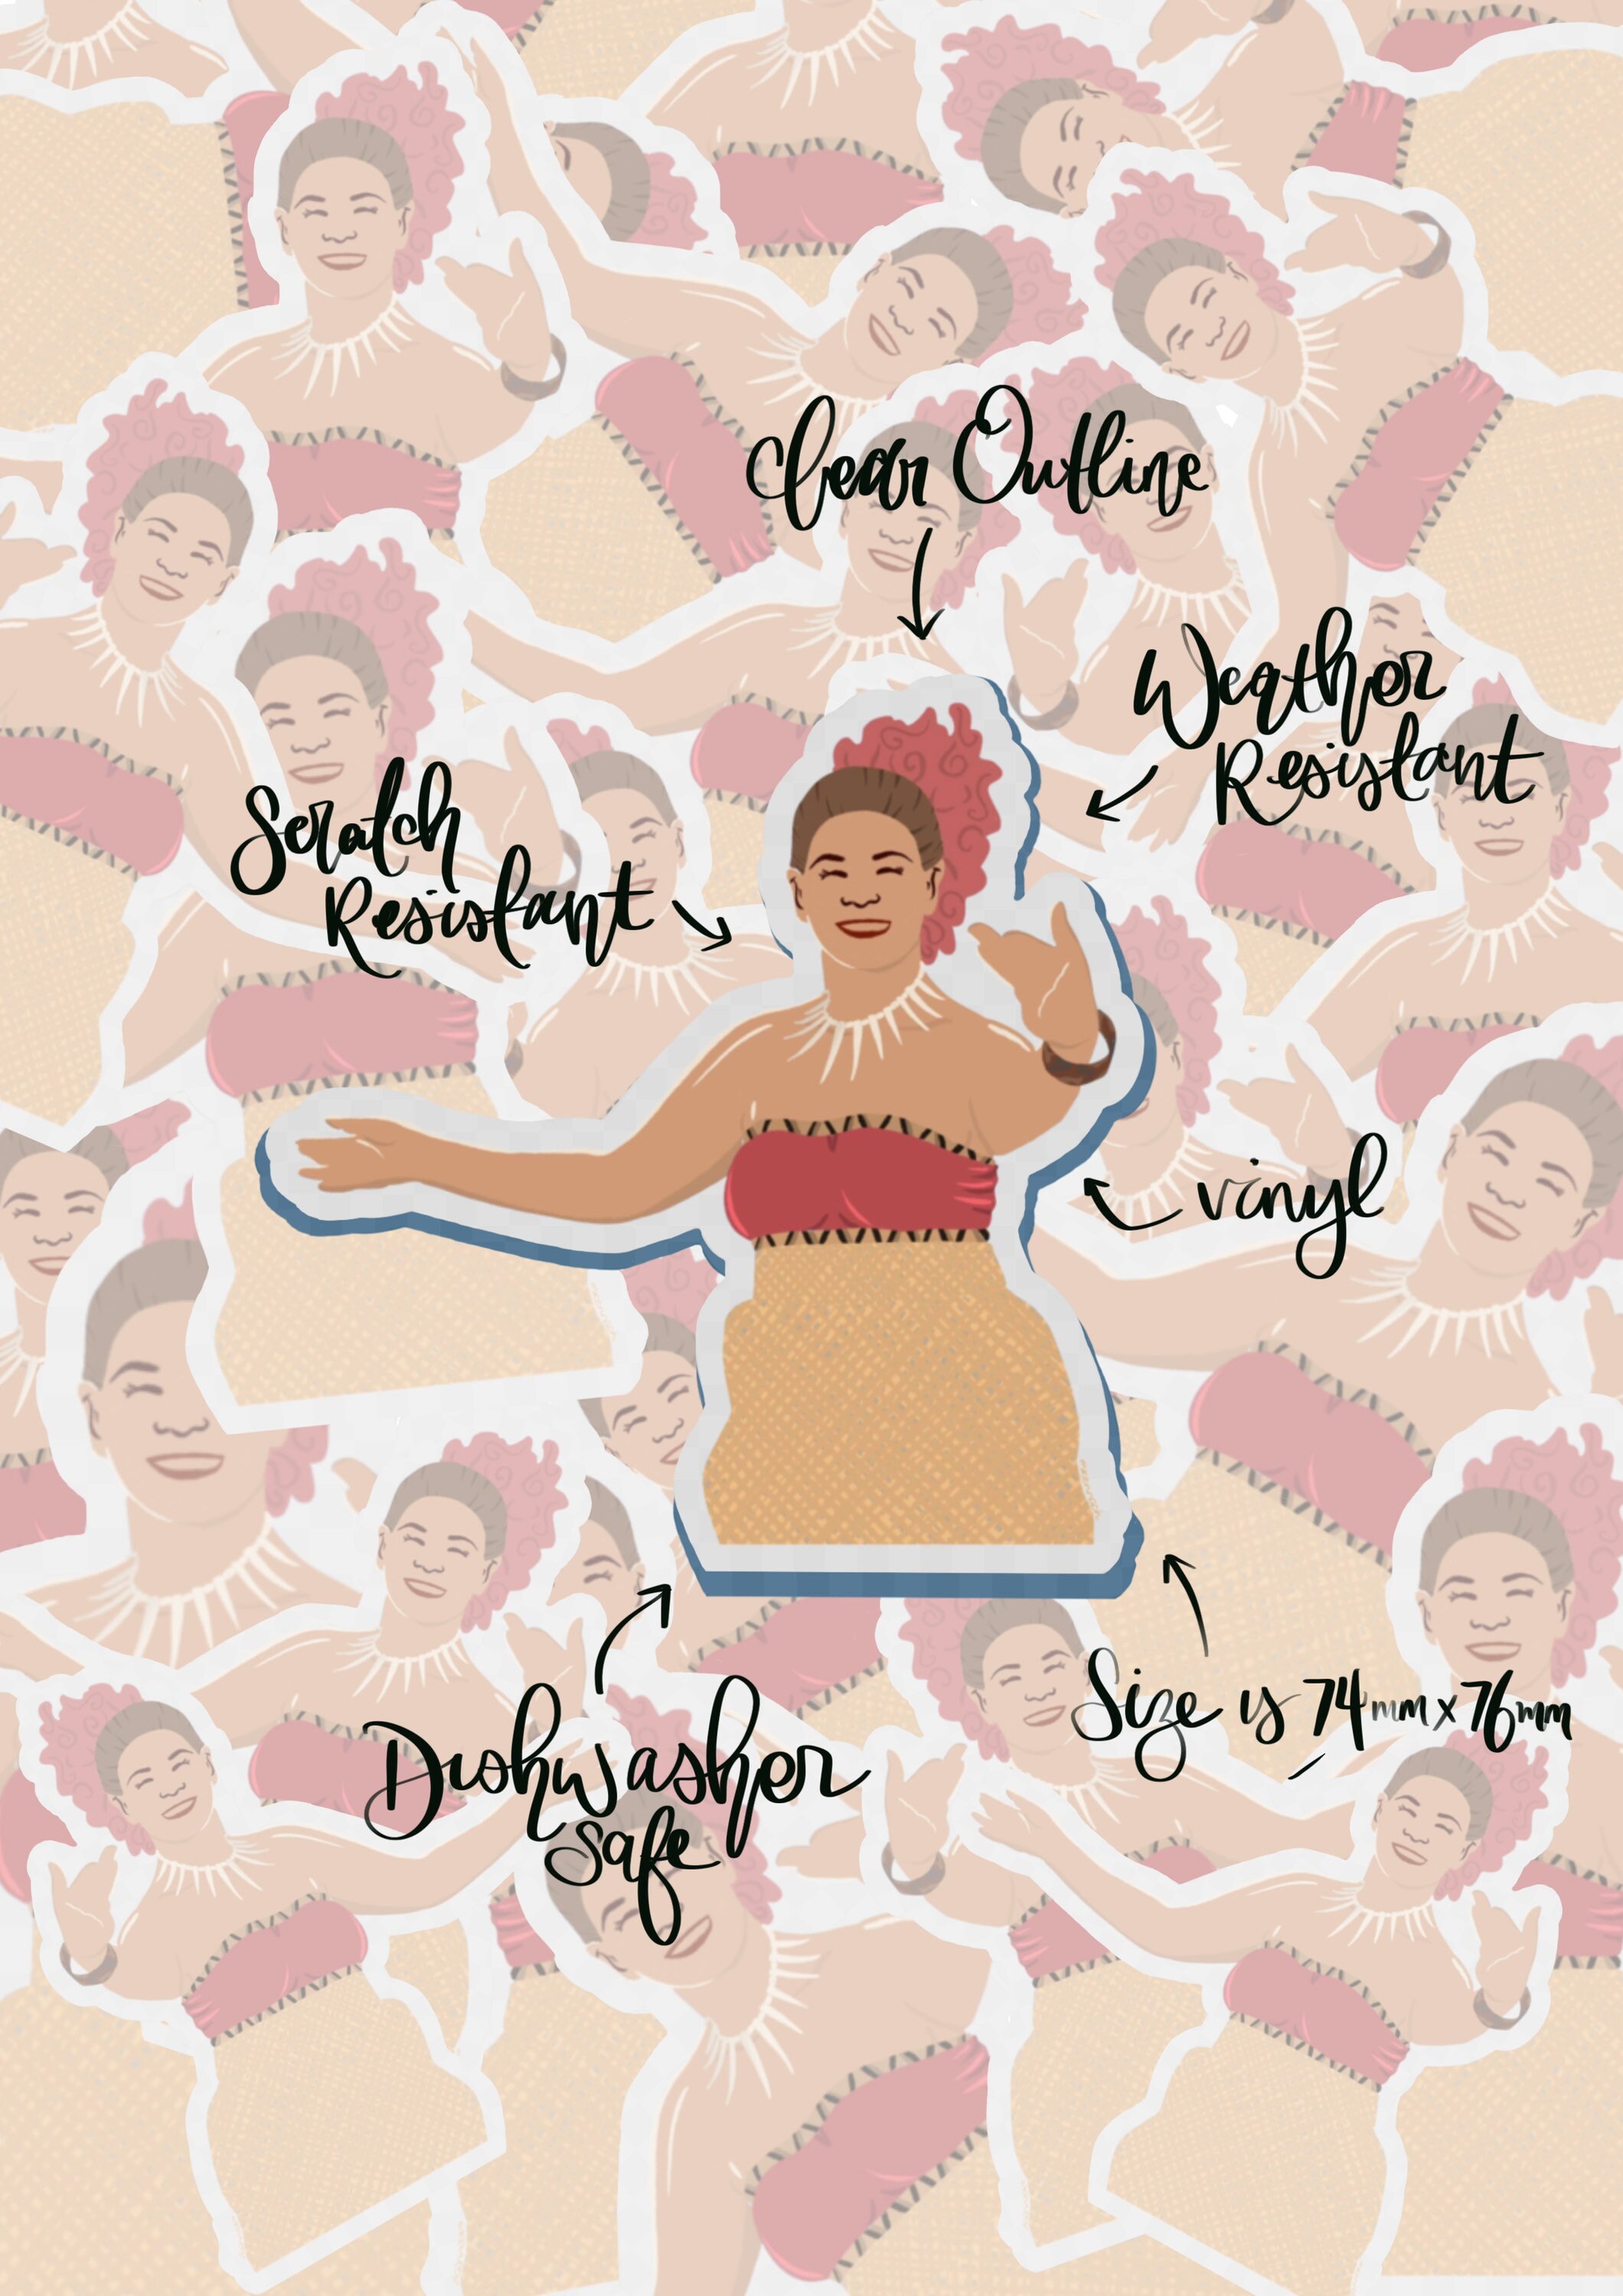 Clear Outline
Weather
Resistant
Scratch
Resistant
vinyl
Size is 74mm x 76mm
Dishwasher
safe